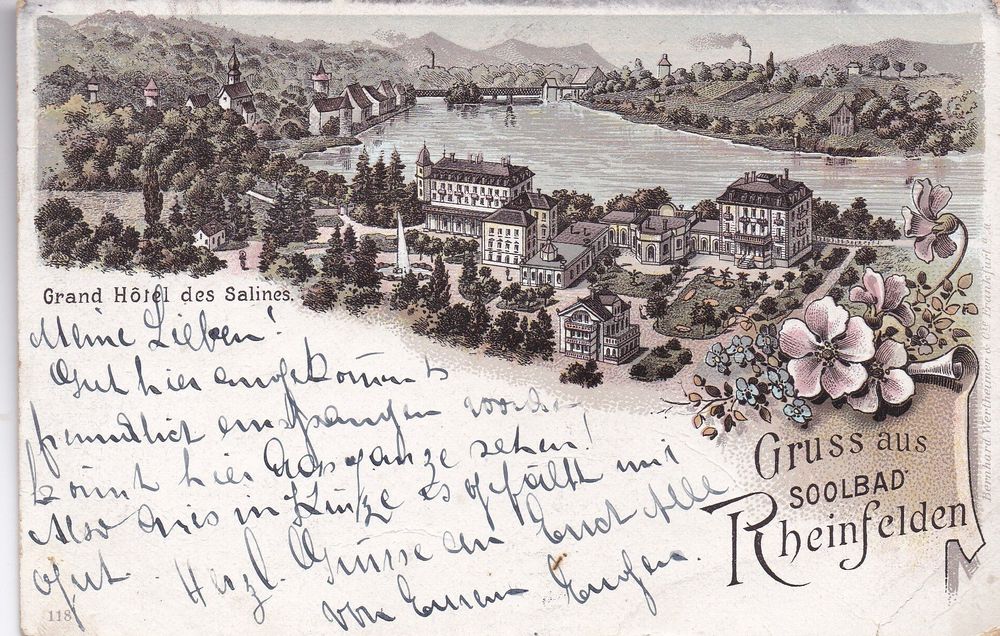 Grand Hôtel des Salines.
Meine Lieben!
Gut hier angekommen
freundlich empfangen worden,
könnt hier das ganze sehen!
Also dies in Kürze es gefällt mir
gut. Herzl. Grüsse an Euch Alle
von Eurem Eugen.
Gruss aus
SOOLBAD
Rheinfelden
118
Bernhard Wertheimer & Co Frankfurt a/M